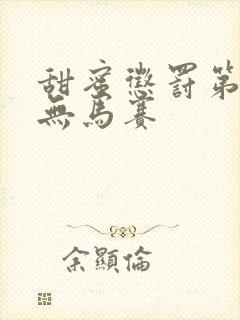 甜蜜懲罰第
無馬賽
余顯倫